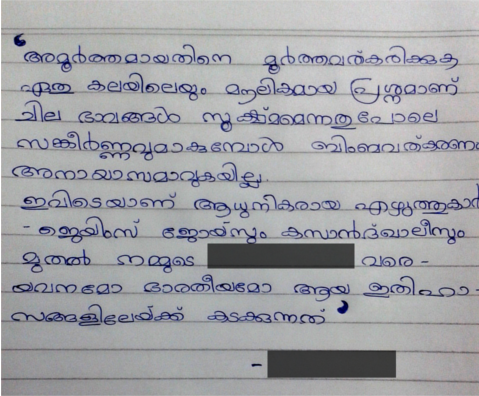 ‘അമൂർത്തമായതിനെ മൂർത്തവത്കരിക്കുക
ഏതു കലയിലെയും മൗലികമായ പ്രശ്നമാണ്
ചില ഭാവങ്ങൾ സൂക്ഷ്മമെന്നതുപോലെ
സങ്കീർണ്ണവുമാകുമ്പോൾ ബിംബവത്കരണം
അനായാസമാവുകയില്ല.
ഇവിടെയാണ് ആധുനികരായ എഴുത്തുകാർ
- ജെയിംസ് ജോയ്സും കസാൻദ്ഖാലീസും
മുതൽ നമ്മുടെ വരെ -
യവനമോ ഭാരതീയമോ ആയ ഇതിഹാ-
സങ്ങളിലേയ്ക്ക് കടക്കുന്നത്’
-